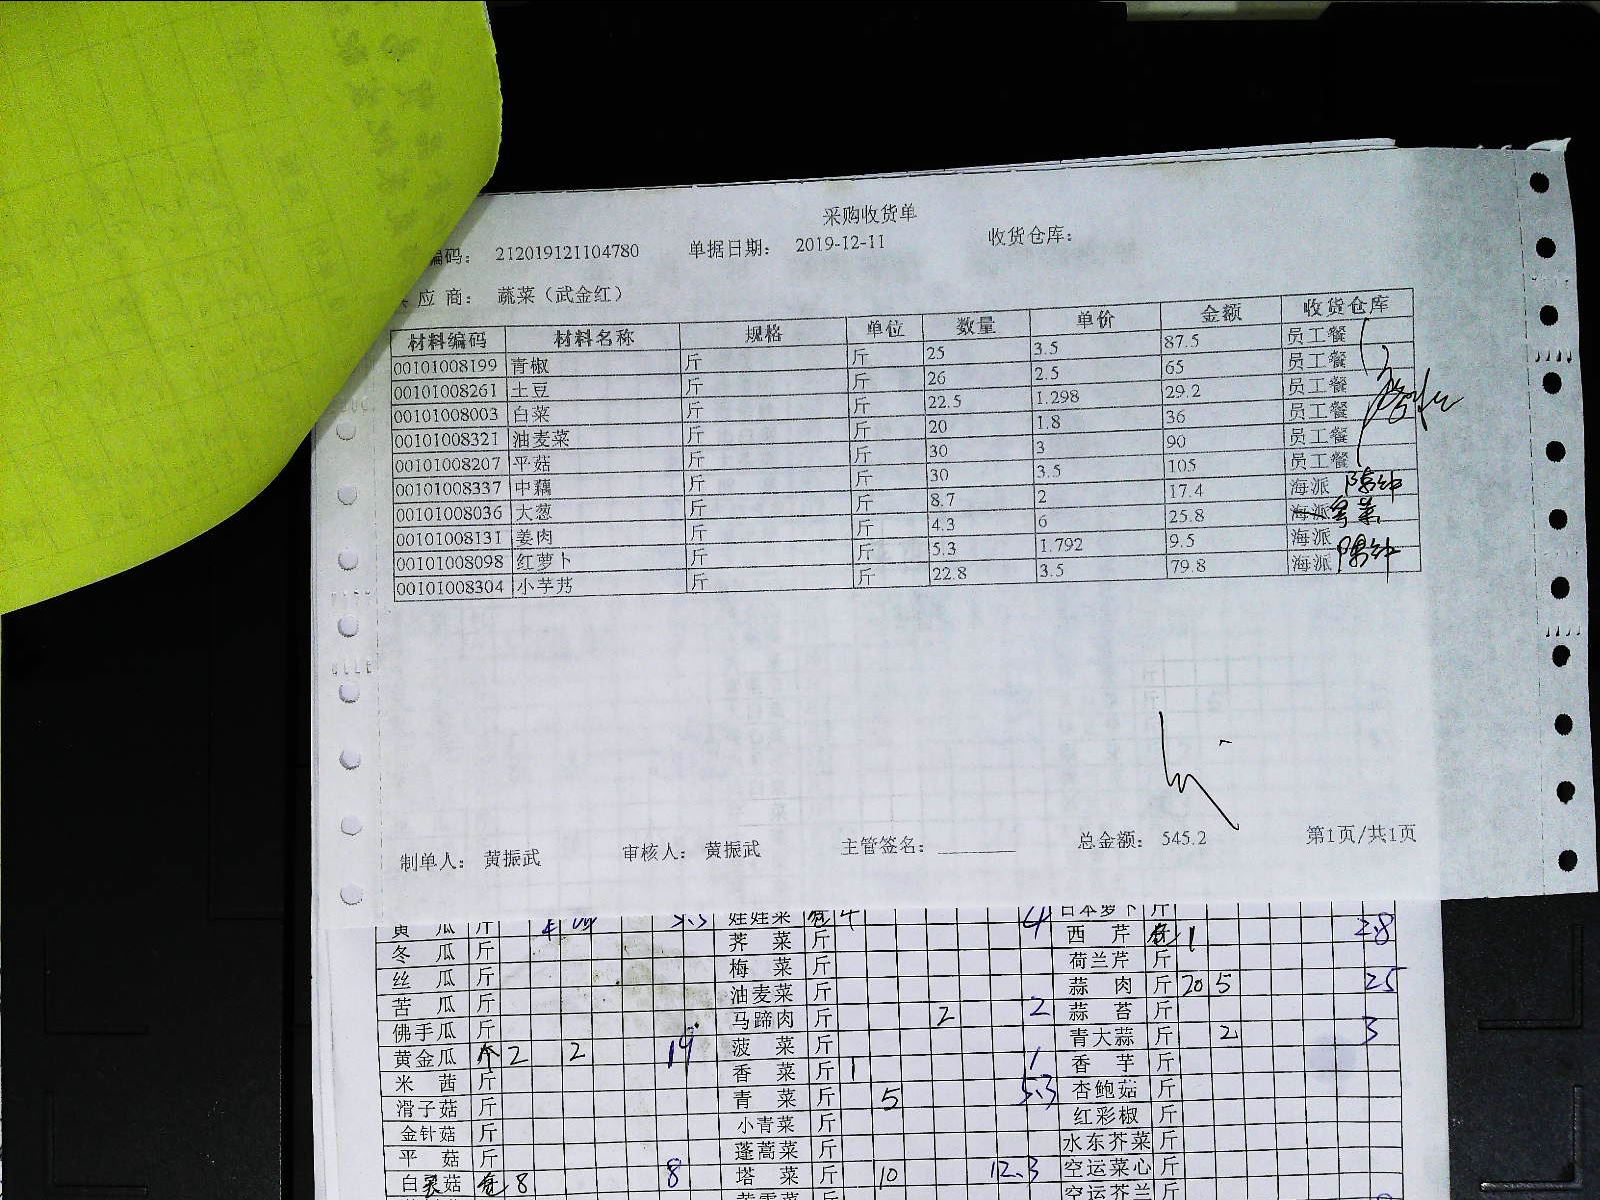 采购收货单
编码： 212019121104780 单据日期： 2019-12-11 收货仓库：
应 商： 蔬菜（武金红）
材料编码 材料名称 规格 单位 数量 单价 金额 收货仓库
00101008199 青椒 斤 斤 25 3.5 87.5 员工餐
00101008261 土豆 斤 斤 26 2.5 65 员工餐
00101008003 白菜 斤 斤 22.5 1.298 29.2 员工餐
00101008321 油麦菜 斤 斤 20 1.8 36 员工餐
00101008207 平菇 斤 斤 30 3 90 员工餐
00101008337 中藕 斤 斤 30 3.5 105 员工餐
00101008036 大葱 斤 斤 8.7 2 17.4 海派
00101008131 姜肉 斤 斤 4.3 6 25.8 海派
00101008098 红萝卜 斤 斤 5.3 1.792 9.5 海派
00101008304 小芋艿 斤 斤 22.8 3.5 79.8 海派
制单人： 黄振武 审核人： 黄振武 主管签名： 总金额： 545.2 第1页/共1页
黄 瓜 斤 娃娃菜 4 4 日本萝卜 斤
冬 瓜 斤 荠 菜 斤 西 芹 1 2.8
丝 瓜 斤 梅 菜 斤 荷兰芹 斤
苦 瓜 斤 油麦菜 斤 蒜 肉 斤 20 5 25
佛手瓜 斤 马蹄肉 斤 2 2 蒜 苔 斤
黄金瓜 个 2 2 19 菠 菜 斤 青大蒜 斤 2 3
米 茜 斤 香 菜 斤 1 1 香 芋 斤
滑子菇 斤 青 菜 斤 5 5.3 杏鲍菇 斤
金针菇 斤 小青菜 斤 红彩椒 斤
平 菇 斤 蓬蒿菜 斤 水东芥菜 斤
白 菇 8 8 塔 菜 斤 10 12.3 空运菜心 斤
空运芥兰 斤